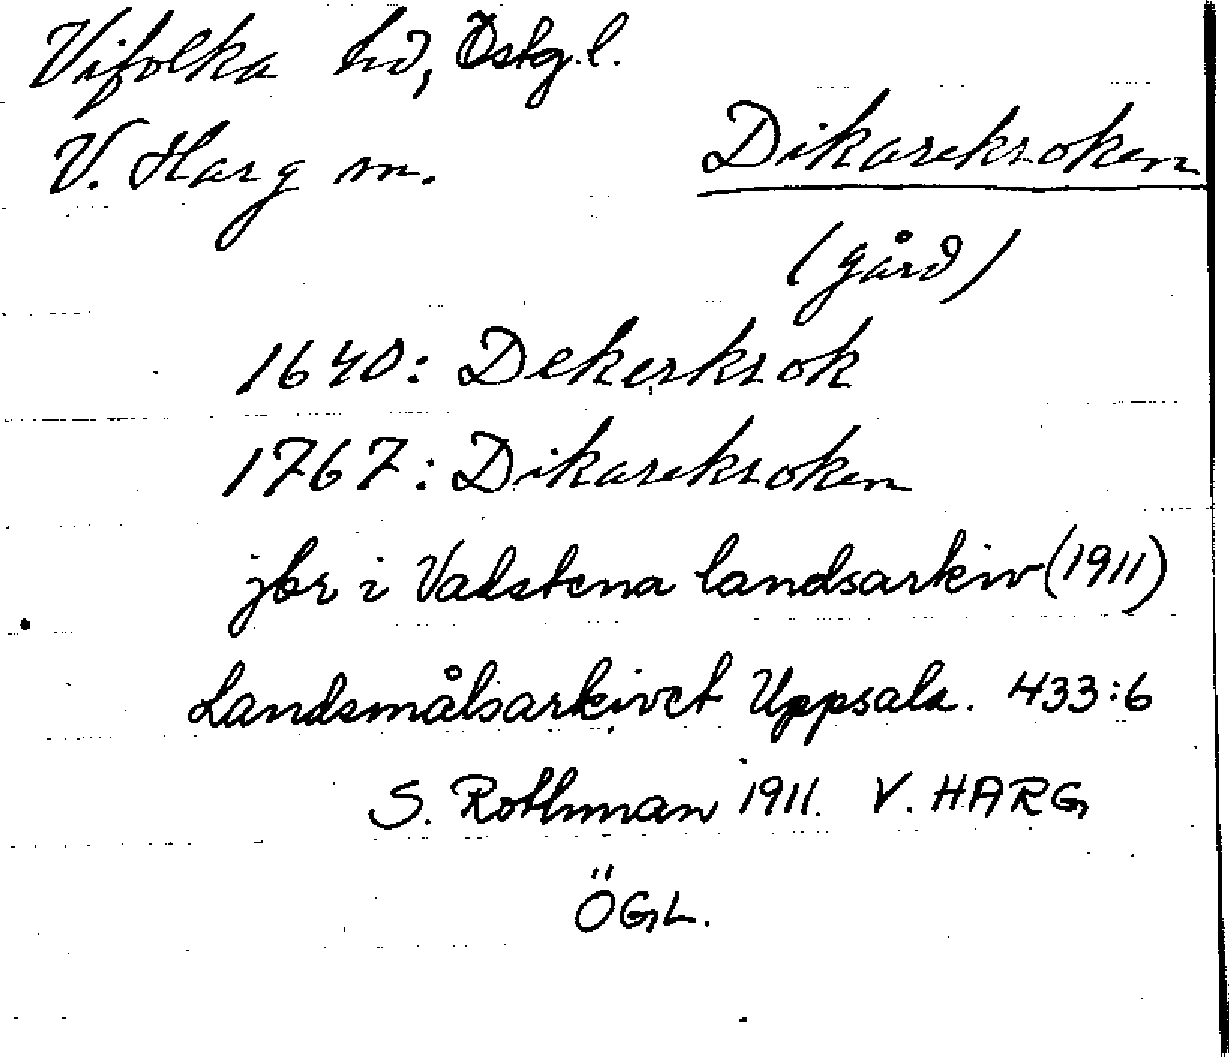 Vifolka hd, Östg.l.
V. Harg sn.
Dikarekroken
(gård)
1640: Dekerkrok
1767: Dikarekroken
jbr i Vadstena landsarkiv (1911)
Landsmålsarkivet Uppsala. 433:6
S. Rothman 1911. V. HARG
ÖGL.